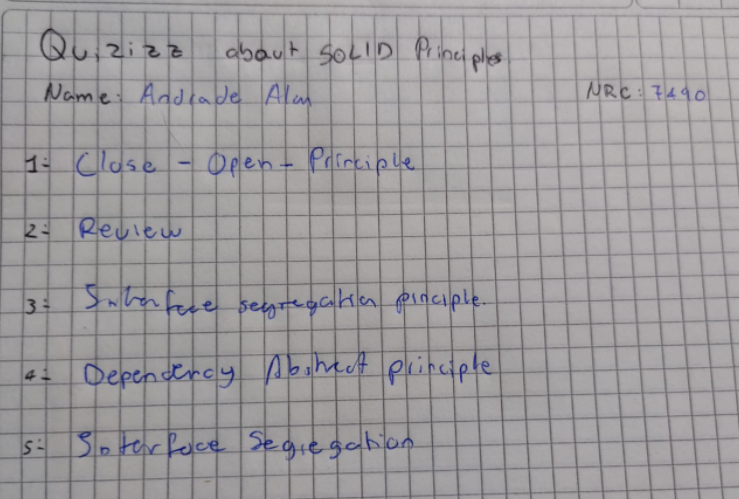 Quizizz about SOLID Principles
Name: Andrade Alan NRC: 7490
1= Close - Open - Principle
2= Review
3= Interface segregation pinciple.
4= Dependency Abstract principle
5= Interface Segregation